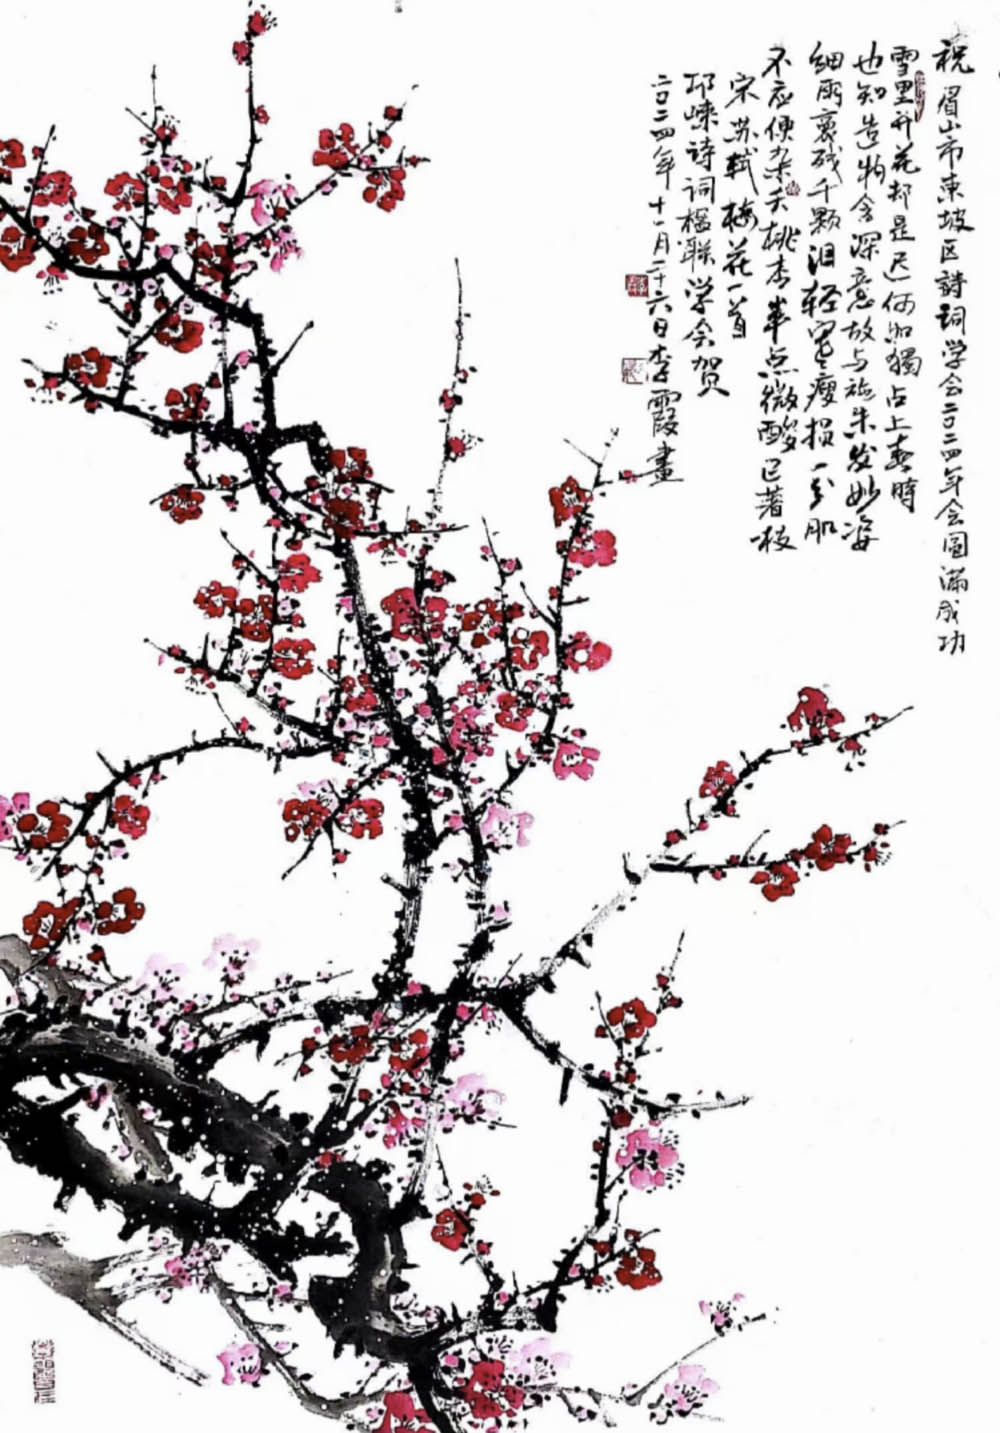 祝眉山市東坡区詩詞学会二〇二四年会圓滿成功
雪里开花却是迟何如獨占上春時
也知造物含深意故与施朱发妙姿
细雨裛残千颗泪轻寒瘦损一分肌
不应便杂夭桃杏半点微酸已著枝
宋苏轼梅花一首
邛崃诗词楹联学会贺
二〇二四年十一月二十六日李霞畫